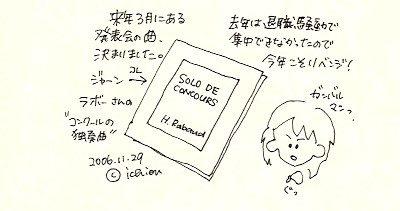 来年3月にある
発表会の曲、
決まりました。
ジャーン
コレ
ラボーさんの
"コンクールの
独奏曲"
2006.11.29
© ichien
SOLO DE
CONCOURS
H. Rabaud
去年は退職騒動で
集中できなかったので
今年こそリベンジ!
ガンバル
マンっ
ぐっ